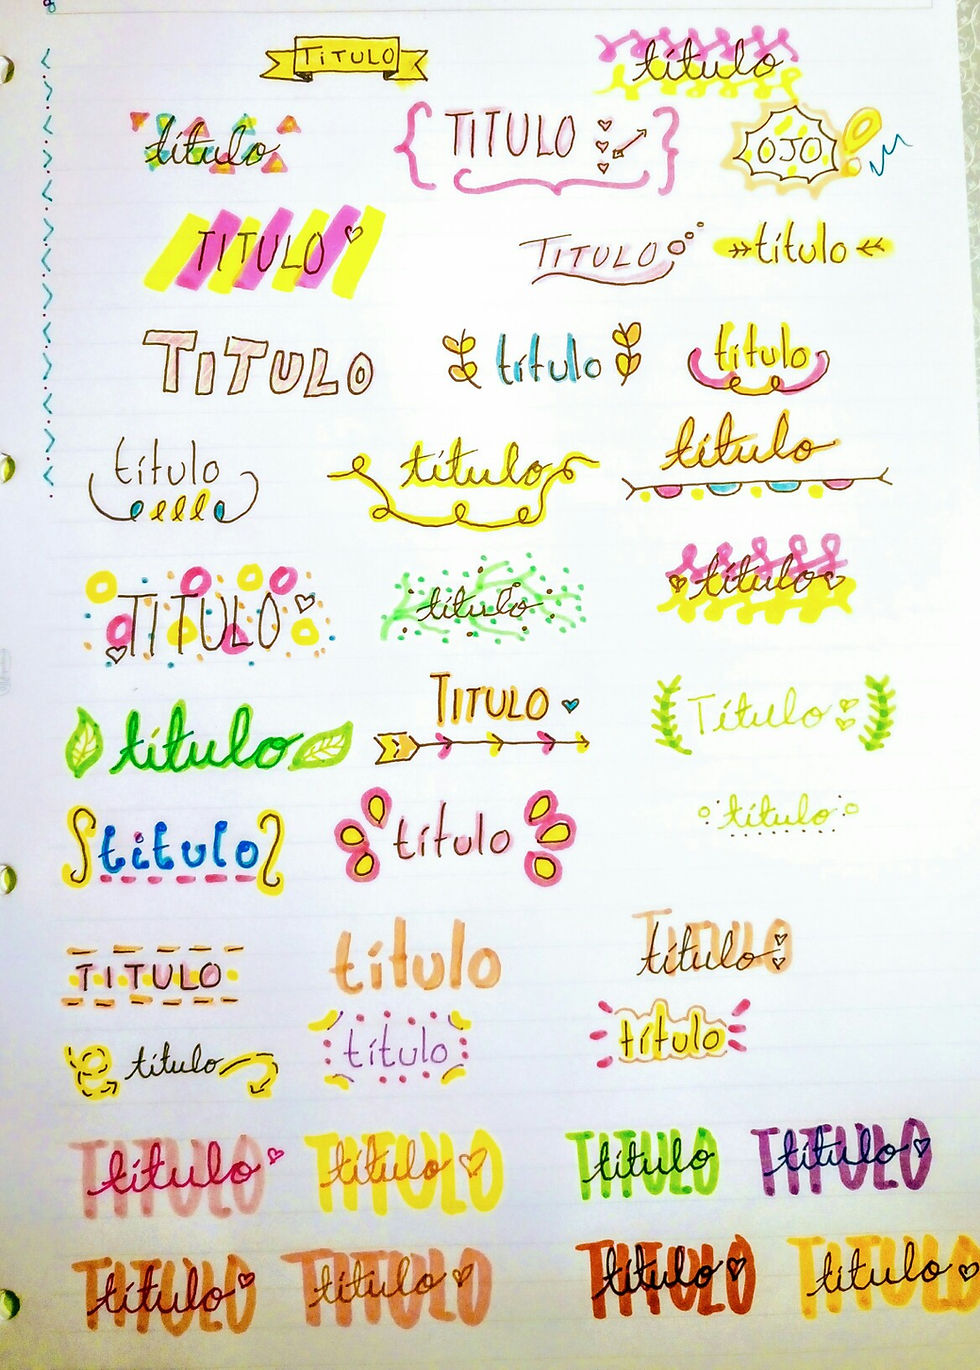 TÍTULO título
título TITULO OJO!
TITULO TITULO título
TITULO título título
título título título
TITULO título título
título TITULO Título
título título título
TITULO título TITULO título
título título título
TITULO título TITULO título TITULO título TITULO título
TITULO título TITULO título TITULO título TITULO título